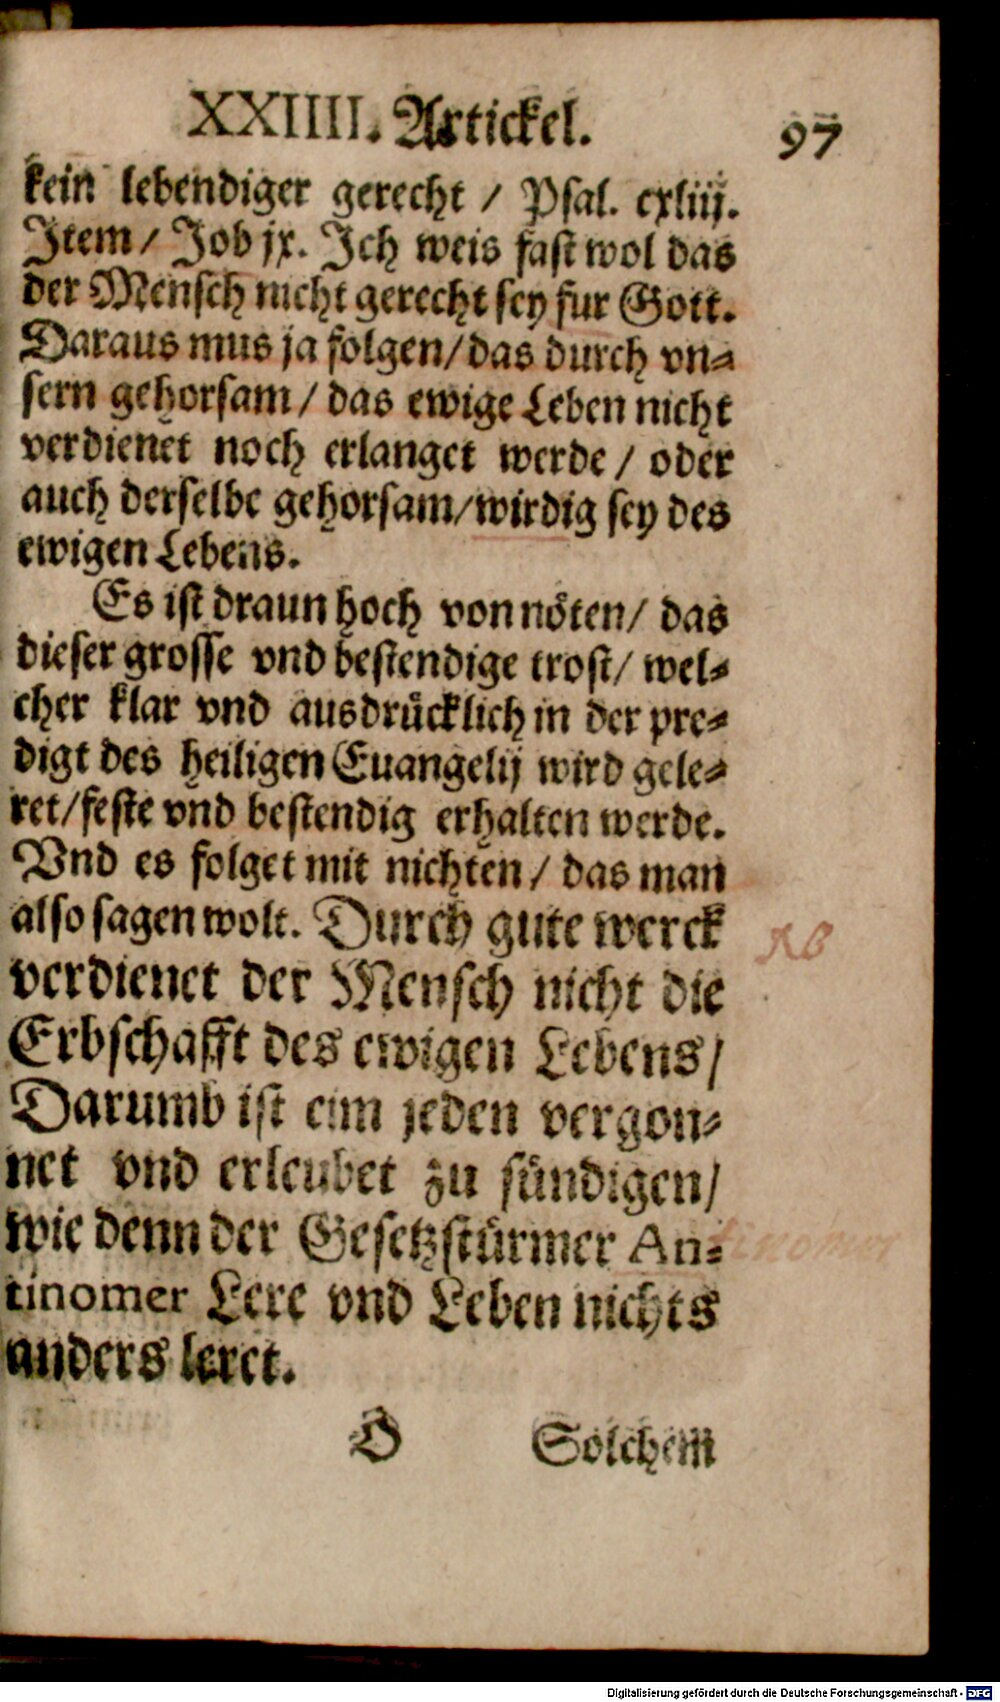 XXIIII. Artickel.
97
kein lebendiger gerecht / Psal. cxliij.
Item / Job jx. Ich weis fast wol das
der Mensch nicht gerecht sey fur Gott.
Daraus mus ja folgen / das durch vn=
sern gehorsam / das ewige Leben nicht
verdienet noch erlanget werde / oder
auch derselbe gehorsam / wirdig sey des
ewigen Lebens.
Es ist draun hoch von nöten / das
dieser grosse vnd bestendige trost / wel=
cher klar vnd ausdrücklich in der pre=
digt des heiligen Euangelij wird gele=
ret / feste vnd bestendig erhalten werde.
Vnd es folget mit nichten / das man
also sagen wolt. Durch gute werck
verdienet der Mensch nicht die
Erbschafft des ewigen Lebens /
Darumb ist eim jeden vergon=
net vnd erleubet zu sündigen /
wie denn der Gesetzstürmer An=
tinomer Lere vnd Leben nichts
anders leret.
O Solchem
NB
tinomer
Digitalisierung gefördert durch die Deutsche Forschungsgemeinschaft - DFG